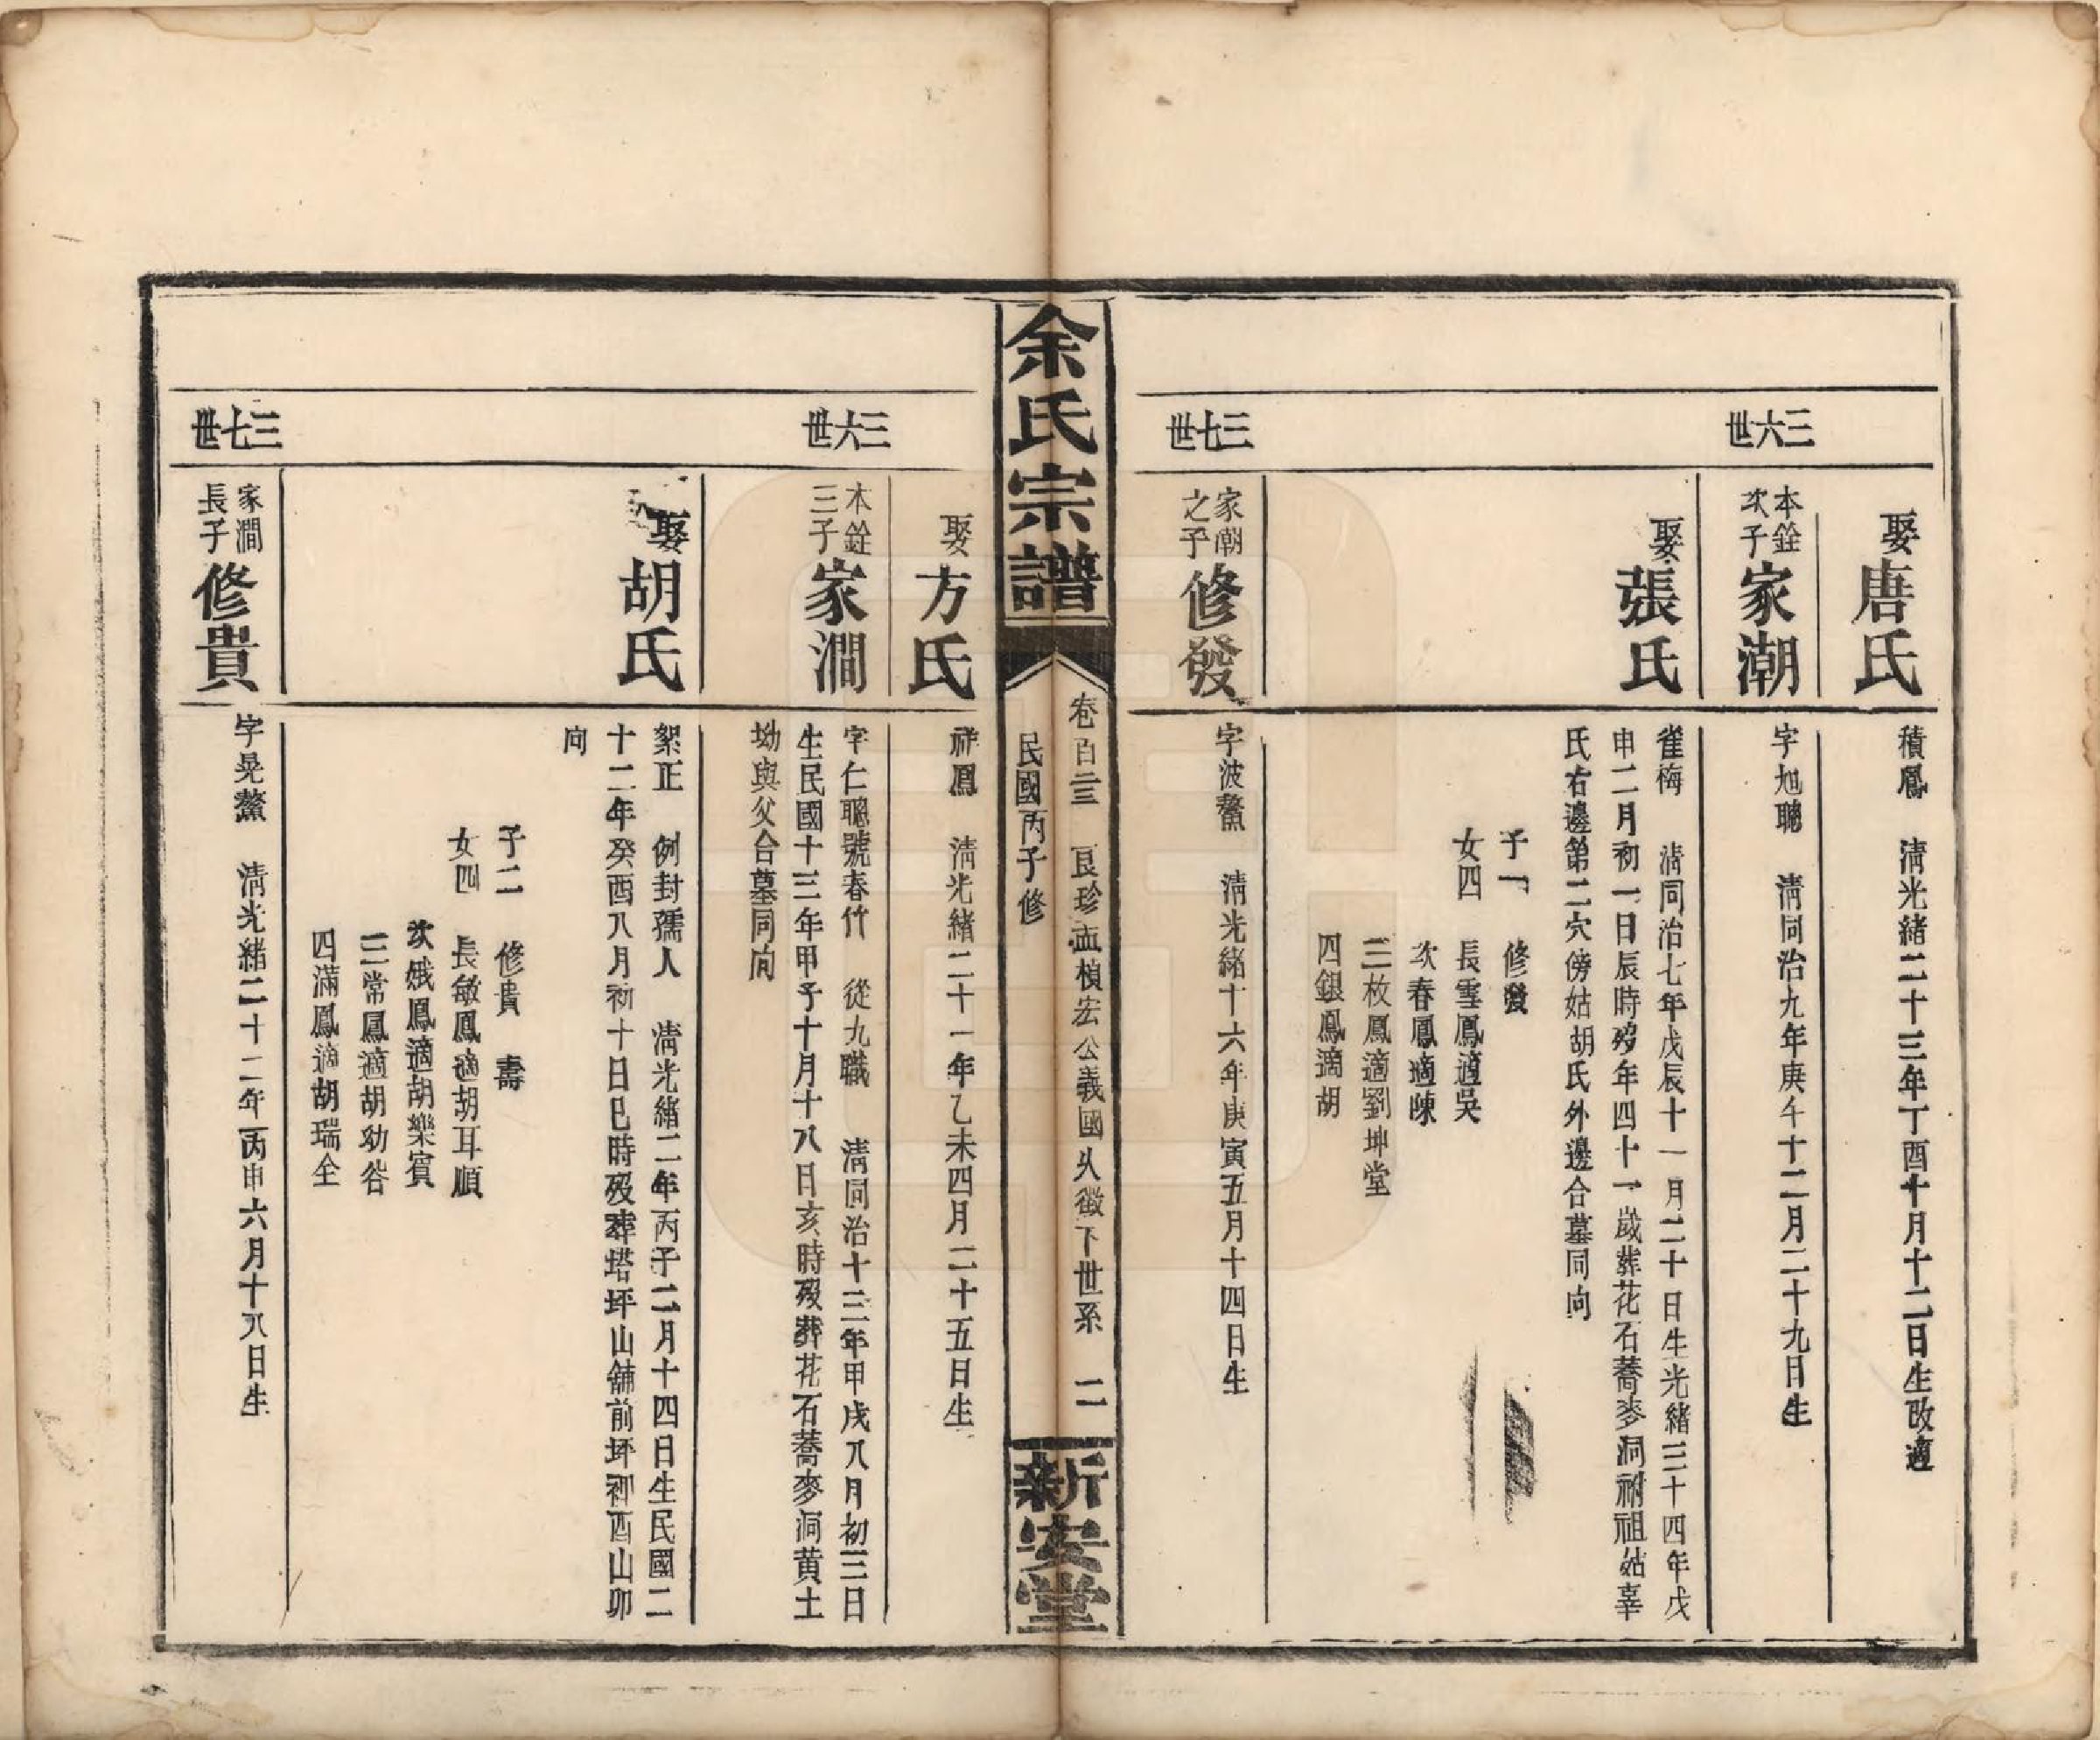 娶唐氏
積鳳　清光緒二十三年丁酉十月十二日生改適
三六世
本銓次子家潮
字旭聰　清同治九年庚午十二月二十九日生
娶張氏
雀梅　清同治七年戊辰十一月二十日生光緒三十四年戊
申二月初一日辰時歿年四十一歲葬花石蕎麥洞祔祖姑辜
氏右邊第二穴傍姑胡氏外邊合墓同向
子一　修發
女四　長雪鳳適吳
次春鳳適陳
三枚鳳適劉坤堂
四銀鳳適胡
三七世
家潮之子修發
字波鰲　清光緒十六年庚寅五月十四日生
余氏宗譜
卷百二三　良珍 楨宏公義國 徵下世系　二
民國丙子修
新安堂
娶方氏
祥鳳　清光緒二十一年乙未四月二十五日生
三六世
本銓三子家澗
字仁聰號春竹　從九職　清同治十三年甲戌八月初三日
生民國十三年甲子十月十八日亥時歿葬花石蕎麥洞黃土
坳與父合墓同向
娶胡氏
絮正　例封孺人　清光緒二年丙子二月十四日生民國二
十二年癸酉八月初十日巳時歿葬塔坪山舖前坪 酉山卯
向
子二　修貴　壽
女四　長敏鳳適胡耳順
次娥鳳適胡樂賓
三常鳳適胡幼谷
四滿鳳適胡瑞全
三七世
家澗長子修貴
字晃鰲　清光緒二十二年丙申六月十八日生